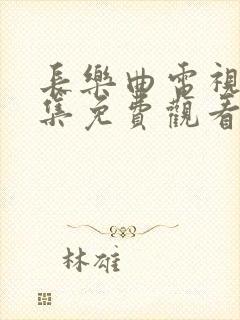 長樂曲電視
集免費觀看
林雄